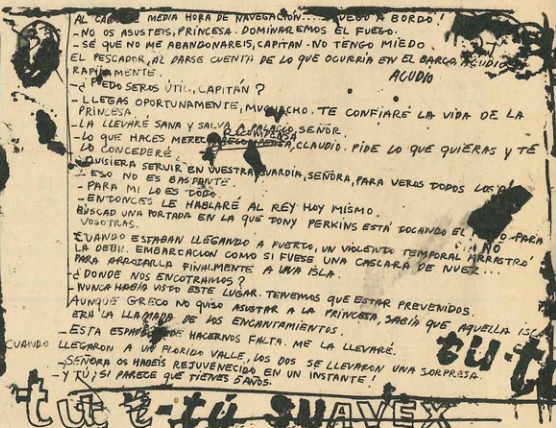 AL CABO DE MEDIA HORA DE NAVEGACION... FUEGO A BORDO!
-NO OS ASUSTEIS, PRINCESA. DOMINAREMOS EL FUEGO.
-SÉ QUE NO ME ABANDONAREIS, CAPITAN-NO TENGO MIEDO.
EL PESCADOR, AL DARSE CUENTA DE LO QUE OCURRIA EN EL BARCO, ACUDIO
RAPIDAMENTE. ACUDIO
-¿PUEDO SEROS ÚTIL, CAPITÁN?
-LLEGAS OPORTUNAMENTE, MUCHACHO. TE CONFIARÉ LA VIDA DE LA
PRINCESA.
-LA LLEVARÉ SANA Y SALVA A PALACIO, SEÑOR.
RECOMPENSA
-LO QUE HACES MERECE RECOMPENSA, CLAUDIO. PIDE LO QUE QUIERAS Y TE
LO CONCEDERÉ.
-QUISIERA SERVIR EN VUESTRA GUARDIA, SEÑORA, PARA VEROS DODOS LOS
-ESO NO ES BASTANTE.
-PARA MI LO ES TODO.
-ENTONCES LE HABLARÉ AL REY HOY MISMO.
BUSCAD UNA PORTADA EN LA QUE TONY PERKINS ESTÁ TOCANDO EL PARA
VOSOTRAS. NO
CUANDO ESTABAN LLEGANDO A PUERTO, UN VIOLENTO TEMPORAL ARRASTRÓ
LA DEBIL EMBARCACION COMO SI FUESE UNA CASCARA DE NUEZ...
PARA ARROJARLA FINALMENTE A UNA ISLA.
-¿DONDE NOS ENCOTRAMOS?
-NUNCA HABÍA VISTO ESTE LUGAR. TENEMOS QUE ESTAR PREVENIDOS.
AUNQUE GRECO NO QUISO ASUSTAR A LA PRINCESA, SABÍA QUE AQUELLA ISLA
ERA LA LLAMADA DE LOS ENCANTAMIENTOS.
-ESTA ESPADA PUEDE HACERNOS FALTA. ME LA LLEVARÉ.
CUANDO LLEGARON A UN FLORIDO VALLE, LOS DOS SE LLEVARON UNA SORPRESA
-SEÑORA OS HABÉIS REJUVENECIDO EN UN INSTANTE!
-Y TÚ ¡SI PARECE QUE TIENES 5 AÑOS.
tú-t
tú t-tú SUAVEX